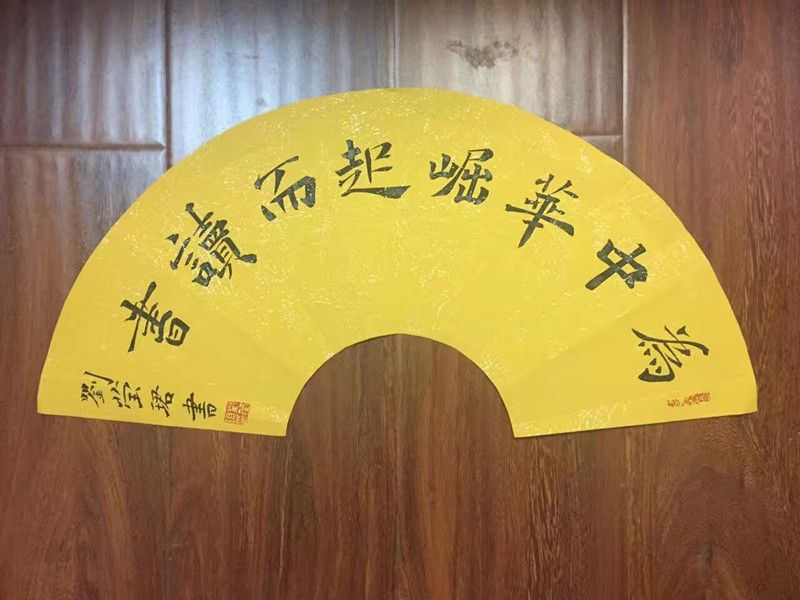 為中華崛起而讀書
劉瑩珺書